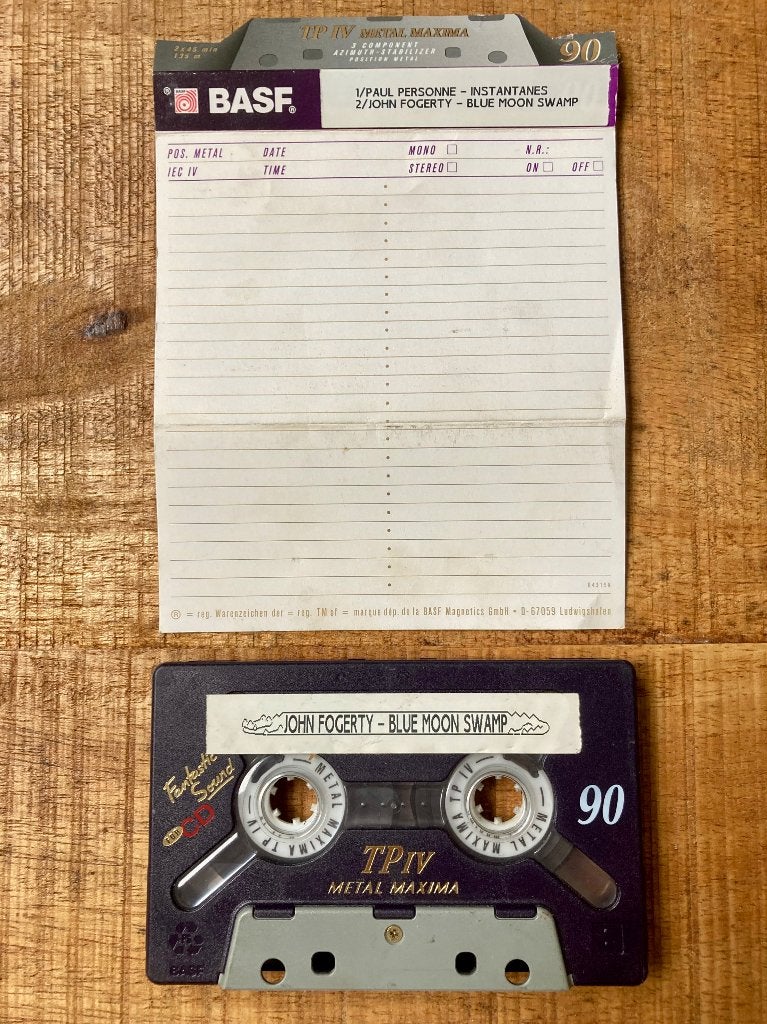 TP IV METAL MAXIMA
2 x 45 min
135 m
3 COMPONENT
AZIMUTH-STABILIZER
POSITION METAL
90
BASF®
1/PAUL PERSONNE - INSTANTANES
2/JOHN FOGERTY - BLUE MOON SWAMP
POS. METAL DATE MONO N.R.:
IEC IV TIME STEREO ON OFF
® = reg. Warenzeichen der = reg. TM of = marque dép. de la BASF Magnetics GmbH • D-67059 Ludwigshafen
JOHN FOGERTY - BLUE MOON SWAMP
Fantastic
Sound
CD
METAL MAXIMA TP IV
METAL MAXIMA TP IV
90
TP IV
METAL MAXIMA
BASF